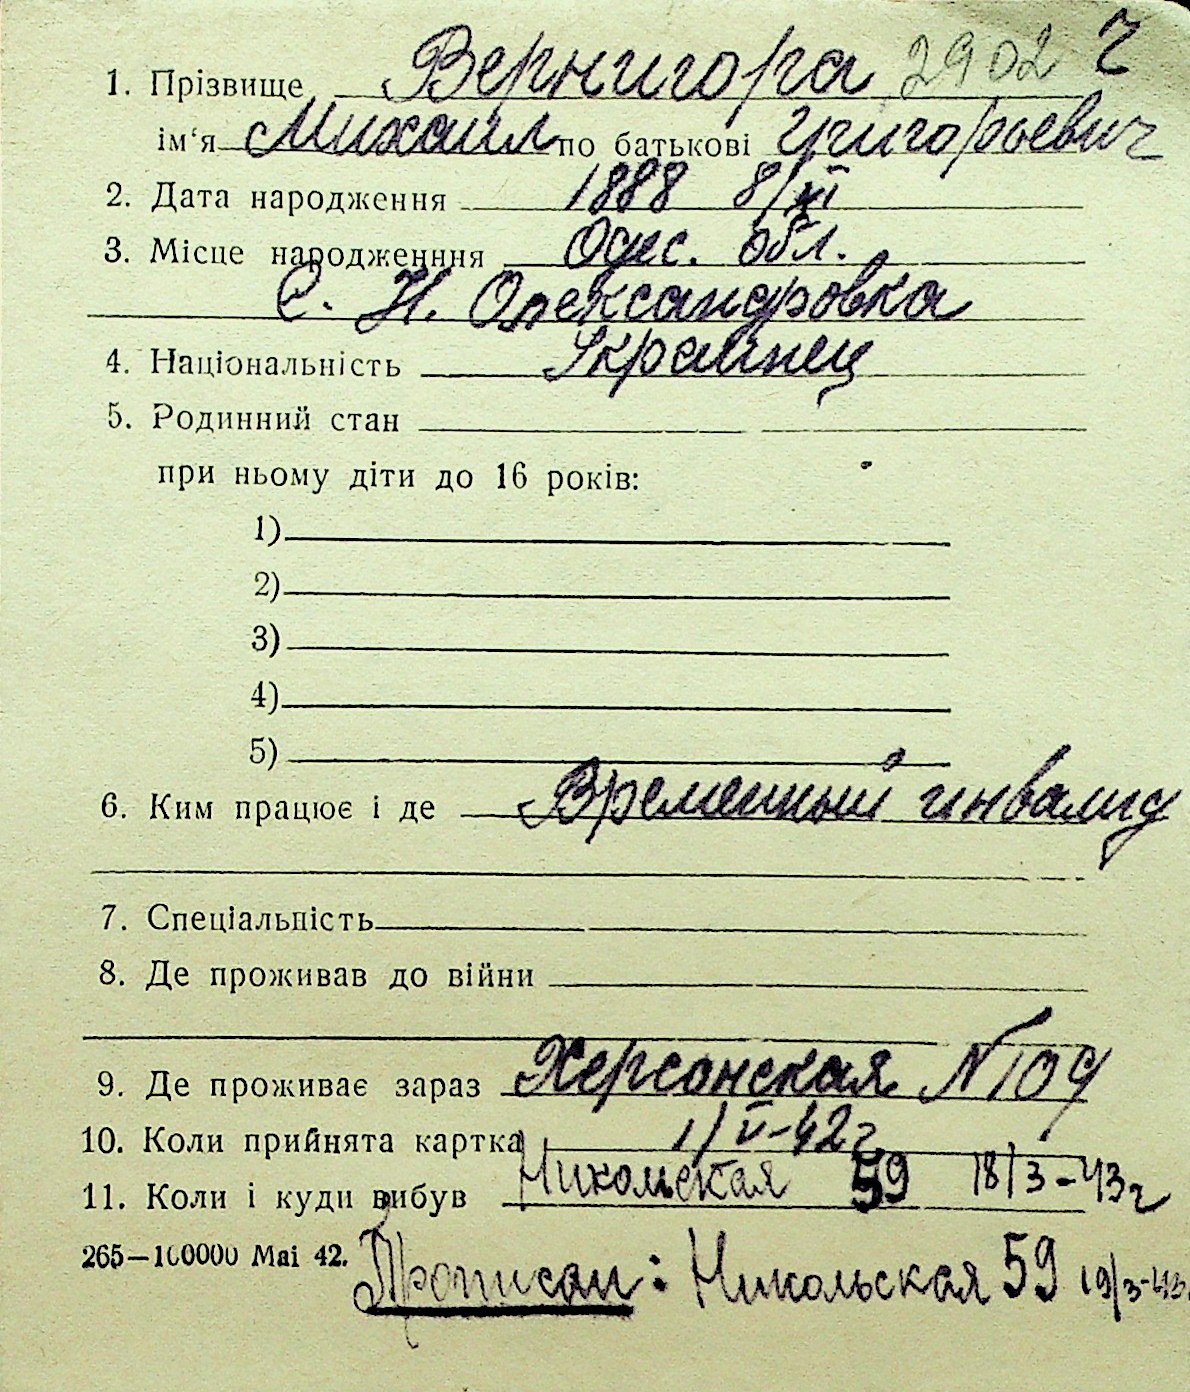 1. Прізвище Вернигора 2902 2
ім'я Михаил по батькові Григорьевич
2. Дата народження 1888 8/XI
3. Місце народженння Одес. обл.
С. Н. Олександровка
4. Національність Украинец
5. Родинний стан
при ньому діти до 16 років:
1)
2)
3)
4)
5)
6. Ким працює і де Временный инвалид
7. Спеціальність
8. Де проживав до війни
9. Де проживає зараз Херсонская №109
10. Коли прийнята картка 1/V-42г
11. Коли і куди вибув Никольская 59 18/3-43г
265—100000 Mai 42.
Прописан: Никольская 59 19/3-43